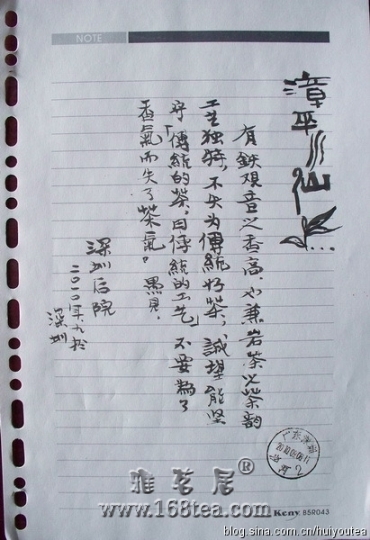 NOTE
漳平水仙…
有鉄观音之香高，也兼岩茶之茶韵
工艺独特，不失为傳統好茶，誠望能坚
守「傳統的茶，由傳統的工艺」不要為了
香氣而失了茶氣。愚見。
深圳后院
二〇一〇年九於
深圳
广东深圳
2
雅茗居®
www.168tea.com
Kcny B5R043
blog.sina.com.cn/huiyoutea